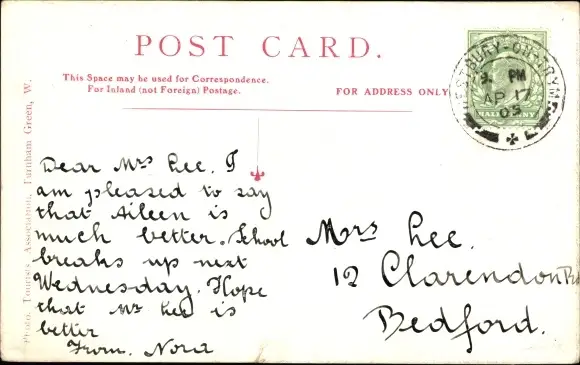 POST CARD.
This Space may be used for Correspondence.
For Inland (not Foreign) Postage.
FOR ADDRESS ONLY
WESTBURY-ON-TRYM
3. PM
AP 17
05
HALFPENNY
Photo. Tourists Association, Farnham Green, W.
Dear Mrs Lee. I
am pleased to say
that Aileen is
much better. School
breaks up next
Wednesday. Hope
that Mr Lee is
better
From. Nora
Mrs Lee.
12 Clarendon Rd
Bedford.